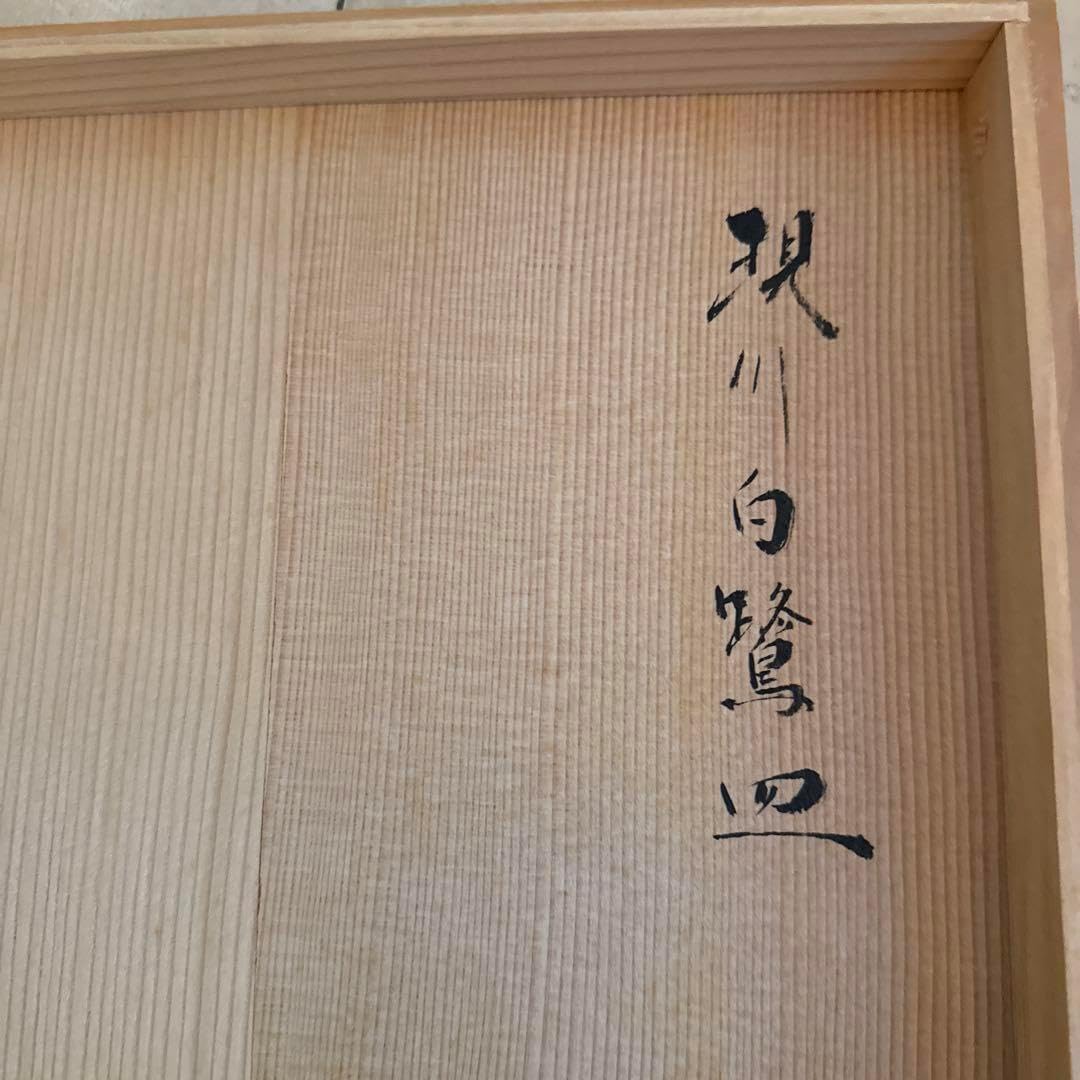 現川白鷺皿